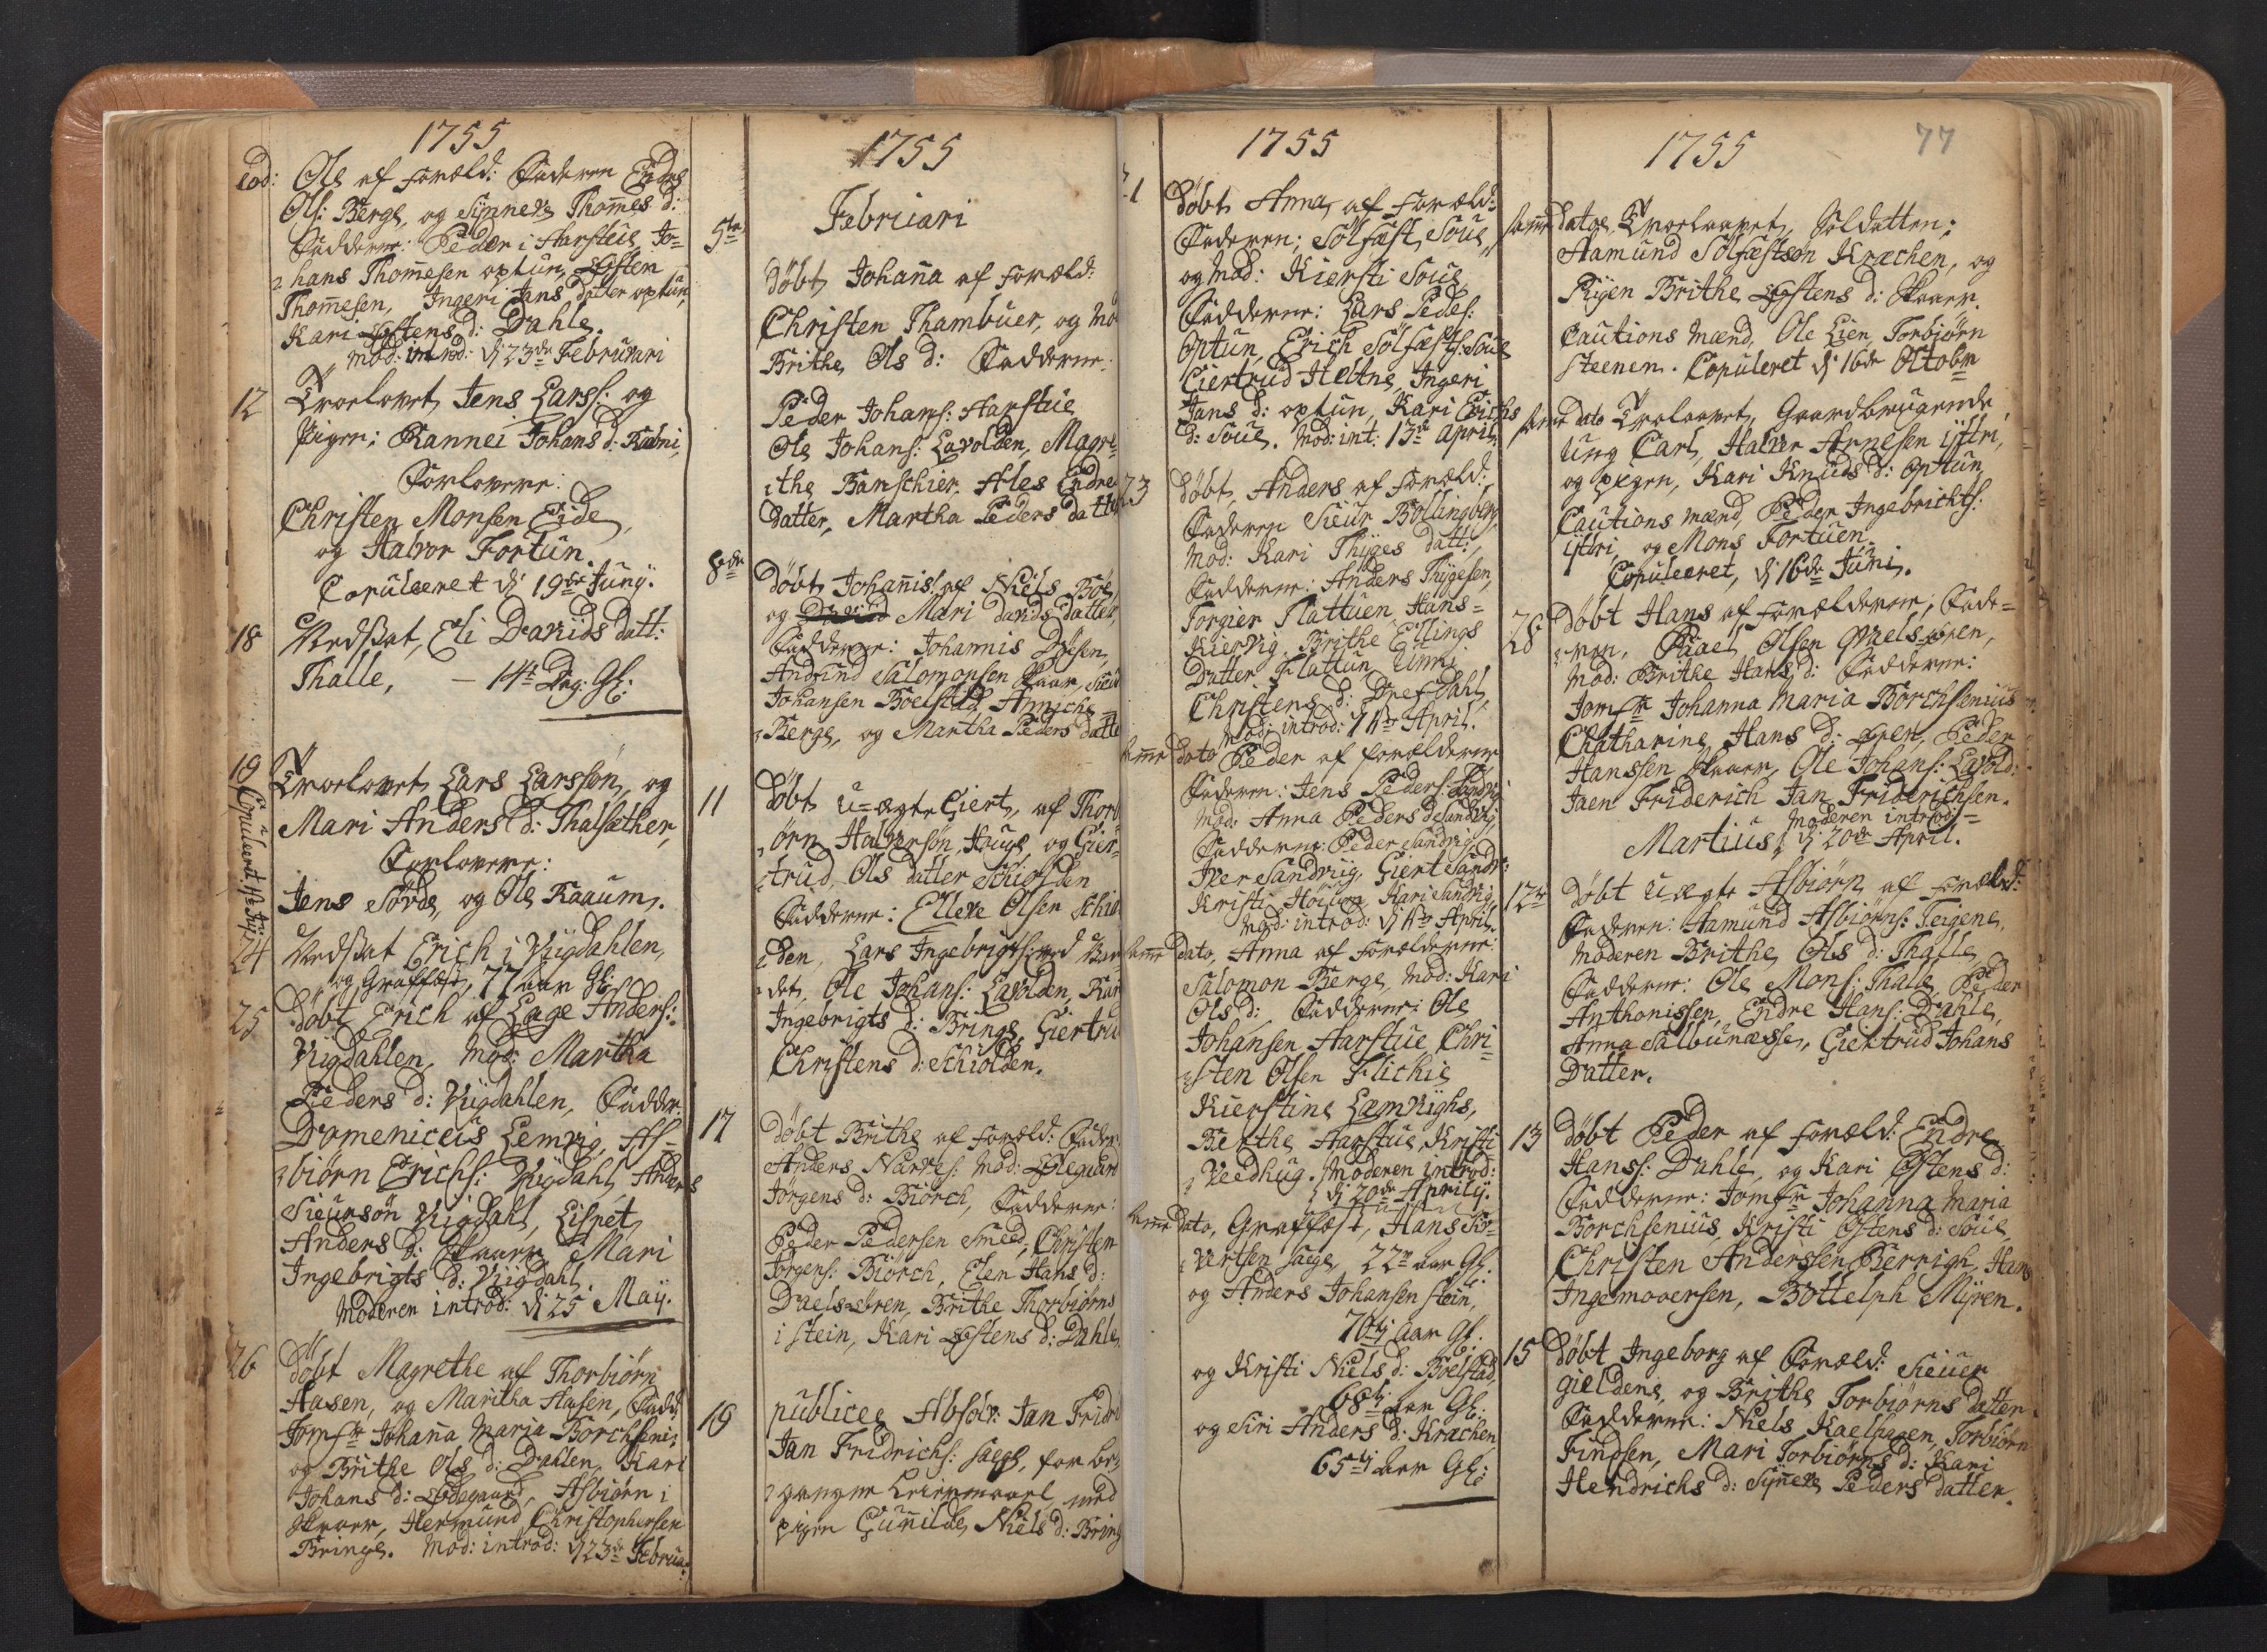 1755
eod: Ole af foræld: Faderen Endre
Ols: Berge, og Synneve Thom̅es d:
Fadderne: Peder i Harstue, Jo=
hans Thom̅esen optun, Østen
Thom̅esen, Ingeri Jans datter optun,
Kari Østens d: Dahle.
Mod: introd: d: 23de Februari
12 Troelovet, Jens Larss: og
pigen; Rannei Johans d:
Forlovere:
Christen Monsen Eide,
og Halvor Fortun.
Copuleeret d: 19de Junÿ.
18 Nedsat, Eli Davids datt:
Thalle, – 14 Dag: Gl:
19 Troelovet Lars Larssøn, og
Mari Anders d: Thalsæther,
Forlovere:
Jens Sørde, og Ole Kaaum.
Copuleret
24 Nedsat Erich i Viigdahlen,
og Graffæst, 77 aar Gl:
25 Døbt Erich af Lage Anders:
Vigdahlen, Mod: Martha
Peders d: Viigdahlen, Fadder:
Domenicus Lemvig, As=
biørn Erichs: Vigdahl, Anders
Sieursøn Vigdahl, Lispet
Anders d: Skaar Mari
Ingebrigts d: Vigdahl.
Moderen introd: d: 25 Maÿ.
26 Døbt Magrethe af Thorbiørn
Hasen, og Martha Hasen, Fadd:
Jomfr Johan̅a Maria Borchseni:
og Brithe Ols d: Dahlen, Kari
Johans d: Ødegaard, Asbiørn i
Skaar, Hermund Christophersen
Bringe. Mod: introd: d: 23de Februa:
1755
Februari
5te Døbt Johan̅a af foræld:
Christen Thambuer, og Mo
Brithe Ols d: Fadderne:
Peder Johans: Harstue
Ole Johans: Lavolden, Magre=
the Barschier, Ales Endre
datter, Martha Peders datter
8de Døbt Johan̅is af Niels Boe,
og Mari Davids datter,
Fadderne: Johannis Døesen,
Andrind Salomonsen Skaar,
Johansen Boelstad, Anniche
Berge, og Martha Peders datte
11 Døbt u=ægte Giert, af Thorb
ørn Halversøn, Houge og Gier=
trud, Ols datter Schiolden
Fadderne: Elleve Olsen Schiol
den, Lars Ingebrigts: ved Van
det, Ole Johans: Lavolden, Kar
Ingebrigts d: Bringe, Giertru
Christens d: Schiolden.
17 Døbt Brithe af foræld: Fader:
Anders Narves: Mod: Ølegaard
Jørgens d: Biørch, Fadderne:
Peder Pedersen Smeed, Christen
Jørgens: Biörch, Elen Hans d:
Daels=øren, Brithe Thorbiørns
i stein, Kari Østens d: Dahle,
19 publicee Absolv: Jan Fridri
Jan Fridrichs: Saege, for be=
gangne Leiermaal med
pigen Gun̅ilde Niels d: Bring
1755
21 Døbt Anna, af foræld:
Faderen; Sølfæst Soue,
og Mod: Kiersti Soue,
Fadderne: Lars Peders:
Optun, Erich Sølfæsts: Soue
Giertrud Heltne, Ingeri
Jans d: optun, Kari Erichs
d: Soue. Mod: int: 13de april
23 Døbt, Anders af foræld:
Faderen Sieur Bollingberg,
Mod: Kari Thÿges datt:
Fadderne: Anders Thÿgesen,
Torgier Flattuen, Hans=
Kiervig, Brithe Ellings
Datter Flattun, Unni
Christens d: Drefdahl,
Mod: introd: 1ste April.
Sam̅e dato Peder af forælderne
Faderen: Jens Peders: Sandvig
Mod: Anna Peders d Sandvig,
Fadderne: Peder Sandvig
Iver Sandviig, Giert Sandv:
Kristi Høium, Kari Sandvig,
Mod: introd: d: 1ste April.
Sam̅e dato, Anna af forælderne:
Salomon Berge, Mod: Kari
Ols d: Fadderne: Ole
Johansen Harstue, Chri=
sten Olsen Flickie
Kierstine Læmvighs,
Berthe Harstue, Kristi
Veedhug. Moderen introd:
d: 20de Aprilÿ.
Sam̅e dato, Graffæst, Hans
versen Saege, 22 aar Gl.
og Anders Johansen Stein,
70ti aar Gl.
og Kristi Niels d: Boelstad,
68ti aar Gl:
og Siri Anders d: Krachen
65ti aar Gl:
1755 77
Sam̅e dato, Troelovet, Soldatten;
Aamund Sølfæstsøn Kræchen, og
Piigen Brithe Østens d: Skaar.
Cautions Mænd, Ole Lien, Torbiørn
Steenen. Copuleret d: 16de Octobr
Sam̅e dato Trolovet, Gaardbrugende
ung Carl, Halver Arnesen ÿttri,
og pigen, Kari Knuds d: Optun
Cautions mænd, Peder Ingebrichts:
ÿttri, og Mons Fortuen.
Copuleeret, d: 16de Juni.
28 Døbt Hans af forælderne, Fade=
ren, Paael Olsen Daels=øren,
Mod: Brithe Hans d: Fadderne:
Jomfr Johanna Maria Borchsenius
Chatharine Hans d: øren, Peder
Hanssen Skaar, Ole Johans: Lavold:
Jaen Friderich Jan Friderichsen.
Moderen introd:=
Martius d: 20de April.
12te Døbt uægte Asbiørn af Foræld:
Faderen: Aamund Asbiørns: Teigene,
Moderen Brithe Ols d: Thalle
Fadderne: Ole Mons: Thalle, Peder
Anthonissen, Endre Hans: Dahle,
Anna Salbunæsse, Giertrud Johans
Datter.
13 Døbt Peder af foræld: Endre
Hanss: Dahle, og Kari Østens d:
Fadderne: Jomfr Johanna Maria
Borchsenius, Kristi Østens d: Soue,
Christen Anderssen Berrigh, Hans
Ingemoersen, Bottelph Mÿren.
15 Døbt Ingeborg af Foræld: Sieuer
gieldene, og Brithe Torbiørns datter.
Fadderne: Niels Kaelhagen, Torbiørn
Findsen, Mari Torbiørns d: Kari
Hendrichs d: Sÿneve Peders datter.